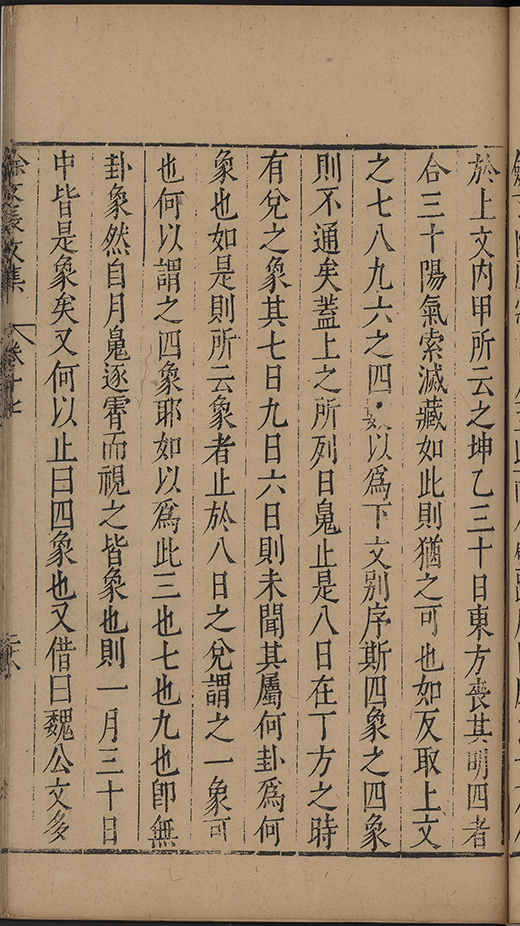 於上文內甲所云之坤乙三十日東方喪其明四者
合三十陽氣索滅藏如此則猶之可也如反取上文
之七八九六之四以爲下文別序斯四象之四象
則不通矣葢上之所列日鬼止是八日在丁方之時
有兌之象其七日九日六日則未聞其屬何卦爲何
象也如是則所云象者止於八日之兌謂之一象可
也何以謂之四象耶如以爲此三也七也九也卽無
卦象然自月鬼逐霄而視之皆象也則一月三十日
中皆是象矣又何以止曰四象也又借曰魏公文多
徐文長文集
卷十七